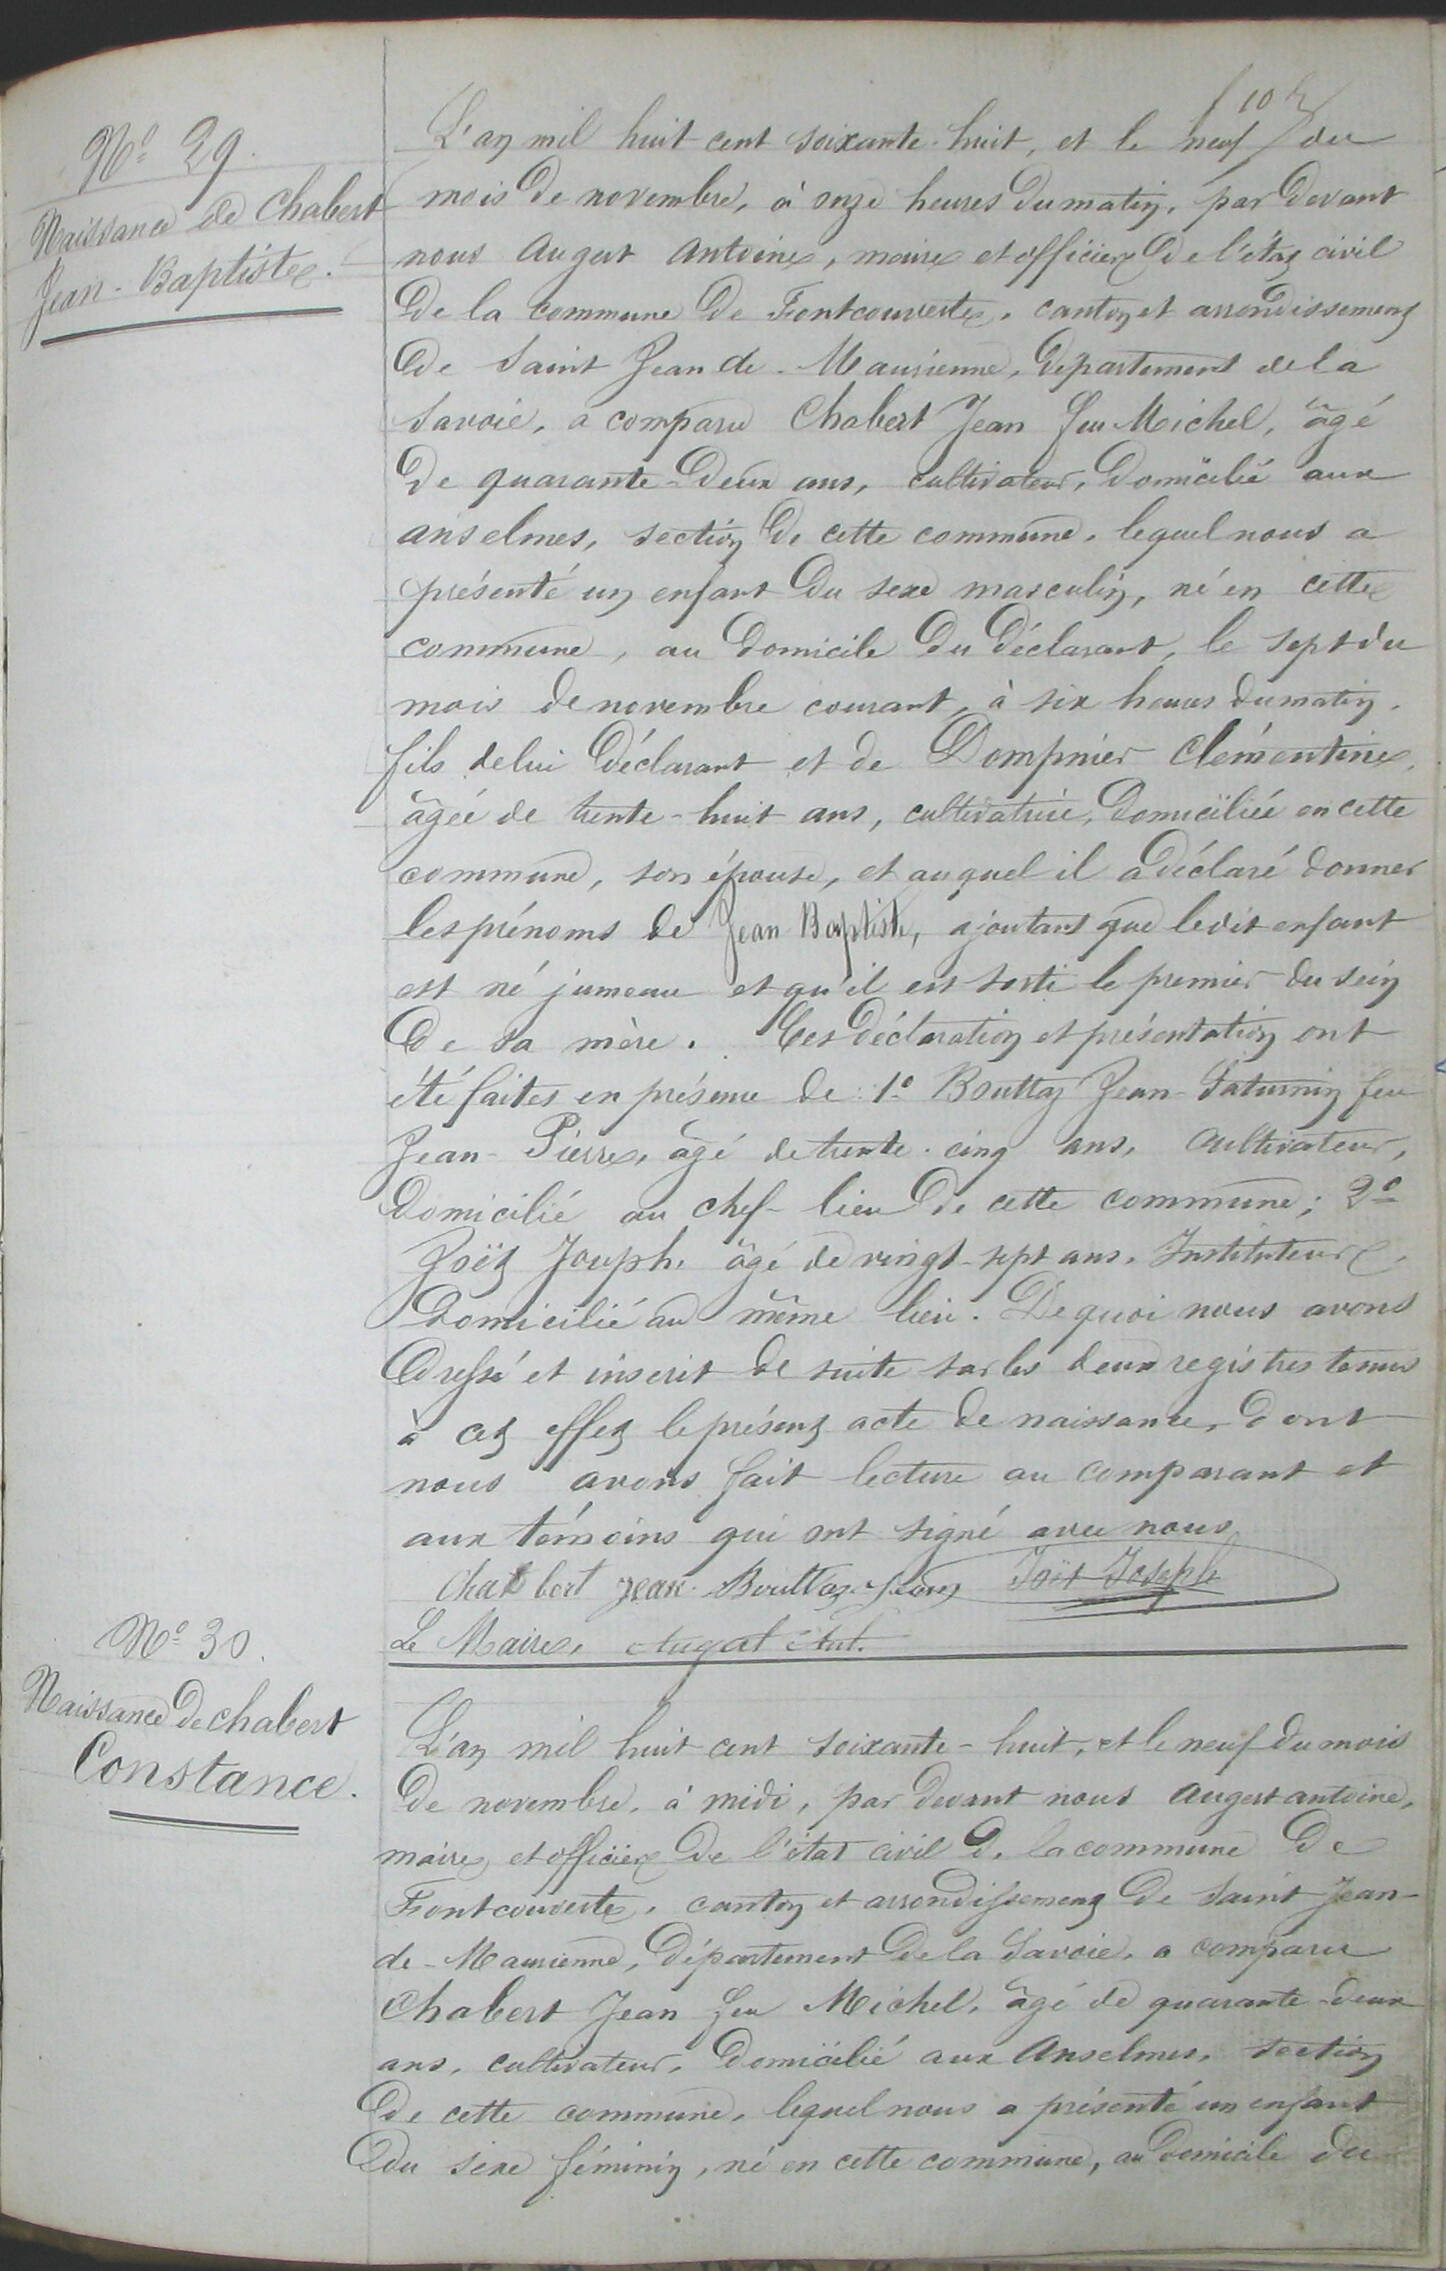 N° 29.
Naissance de Chabert
Jean-Baptiste.
L'an mil huit cent soixante-huit, et le neuf du
mois de novembre, à onze heures du matin, par devant
nous Augert Antoine, maire et officier de l'état civil
de la commune de Fontcouverte, canton et arrondissement
de Saint Jean de-Maurienne, département de la
Savoie, a comparu Chabert Jean feu Michel, âgé
de quarante-deux ans, cultivateur, domicilié aux
anselmes, section de cette commune, lequel nous a
présenté un enfant du sexe masculin, né en cette
commune, au domicile du déclarant, le sept du
mois de novembre courant, à six heures du matin,
fils de lui déclarant et de Dompnier Clémentine,
âgée de trente-huit ans, cultivatrice, domiciliée en cette
commune, son épouse, et auquel il a déclaré donner
les prénoms de Jean Baptiste, ajoutant que ledit enfant
est né jumeau et qu'il est sorti le premier du sein
de sa mère. Ces déclaration et présentation ont
été faites en présence de: 1° Bouttaz Jean-Saturnin feu
Jean-Pierre, âgé de trente-cinq ans, cultivateur,
domicilié au chef-lieu de cette commune; 2°
Joët Joseph, âgé de vingt-sept ans, Instituteur,
domicilié au même lieu. De quoi nous avons
dressé et inscrit de suite sur les deux registres tenus
à cet effet le présent acte de naissance, dont
nous avons fait lecture au comparant et
aux témoins qui ont signé avec nous
Chabert Jean Bouttaz Jean Joët Joseph
Le Maire, Augert Ant.
N° 30.
Naissance de chabert
Constance.
L'an mil huit cent soixante-huit, et le neuf du mois
de novembre, à midi, par devant nous Augert antoine,
maire et officier de l'état civil de la commune de
Fontcouverte, canton et arrondissement de Saint Jean-
de-Maurienne, département de la Savoie, a comparu
Chabert Jean feu Michel, âgé de quarante-deux
ans, cultivateur, domicilié aux Anselmes, section
de cette commune, lequel nous a présenté un enfant
du sexe féminin, né en cette commune, au domicile du